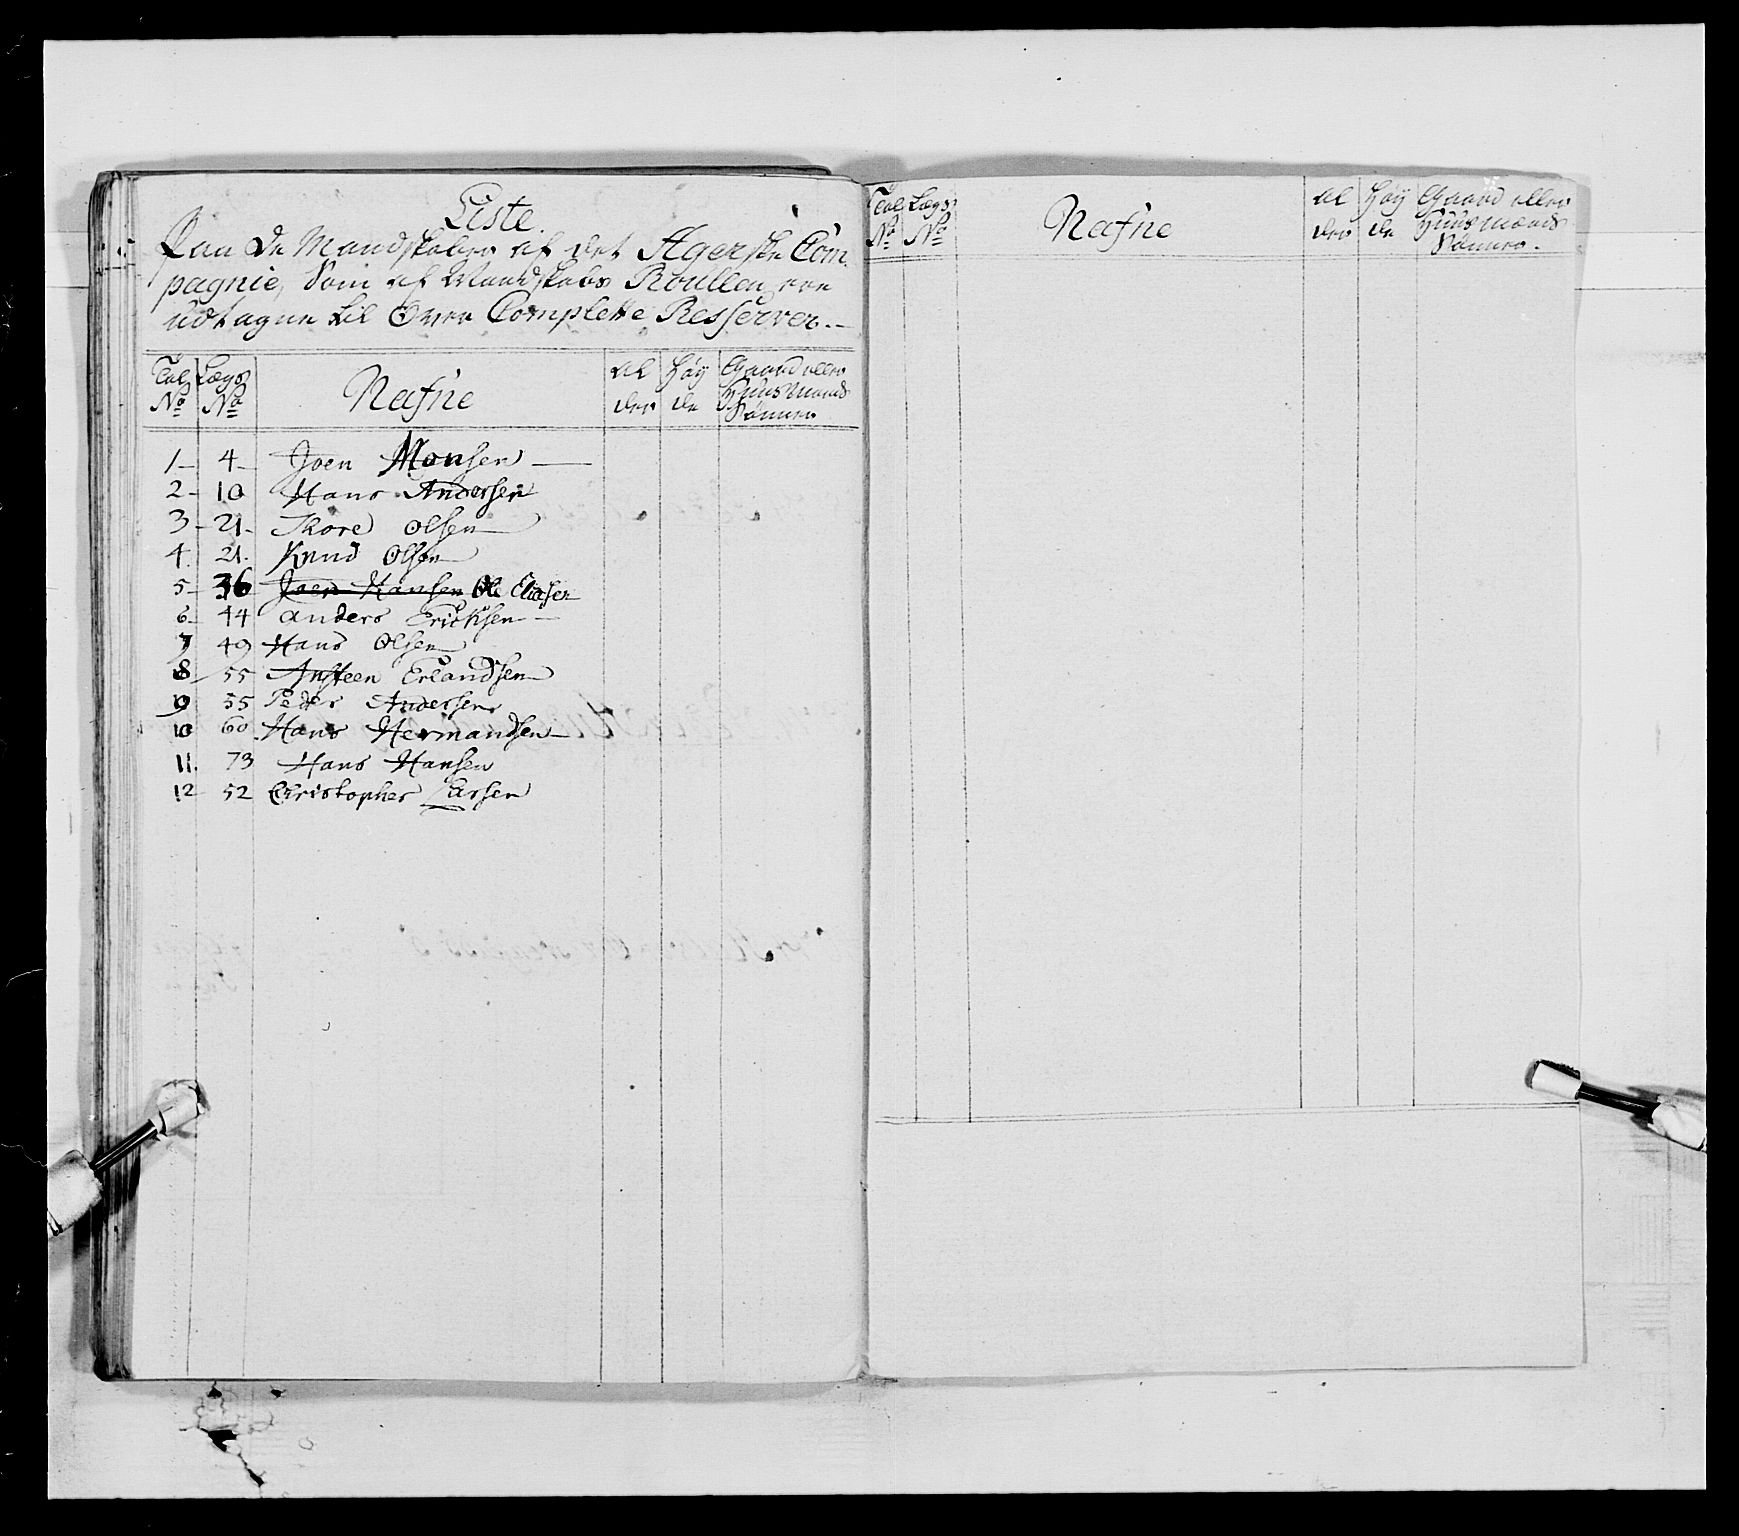 Liste.
Paa de Mandskaber af det Agerske Com-
pagnie, Som af Mandskabs Roullen ere
udtagne til Over Complette Resserver.
Tal No Lægs No Nafne Al der Høy de Gaard eller Huusmands Sønner
1 4 Joen Monsen
2 10 Hans Andersen
3 21 Thore Olsen
4 21 Knud Olsen
5 36 Joen Hansen Ole Eliasen
6 44 Anders Ericksen
7 49 Hans Olsen
8 55 Ansteen Erlandsen
9 55 Peder Andersen
10 60 Hans Hermandsen
11 73 Hans Hansen
12 52 Christopher Larsen
Tal No Lægs No Nafne Al der Høy de Gaard eller Huusmands Sønner.